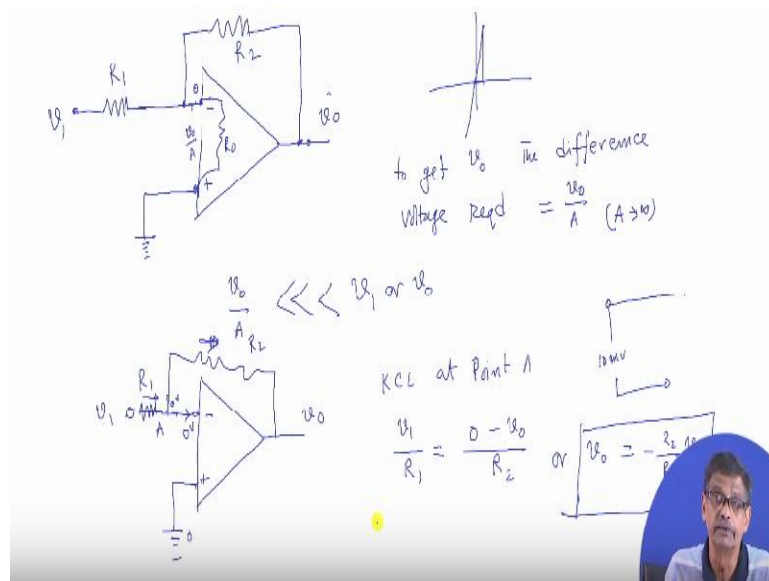 R2
R1
v1
0
v0
v0/A
R0
to get v0 The difference
voltage Reqd = v0/A (A→∞)
v0/A <<< v1 or v0
R2
R1
v1
0V
A
0V
v0
0
10mV
KCL at Point A
v1/R1 = 0 - v0/R2 or v0 = - R2